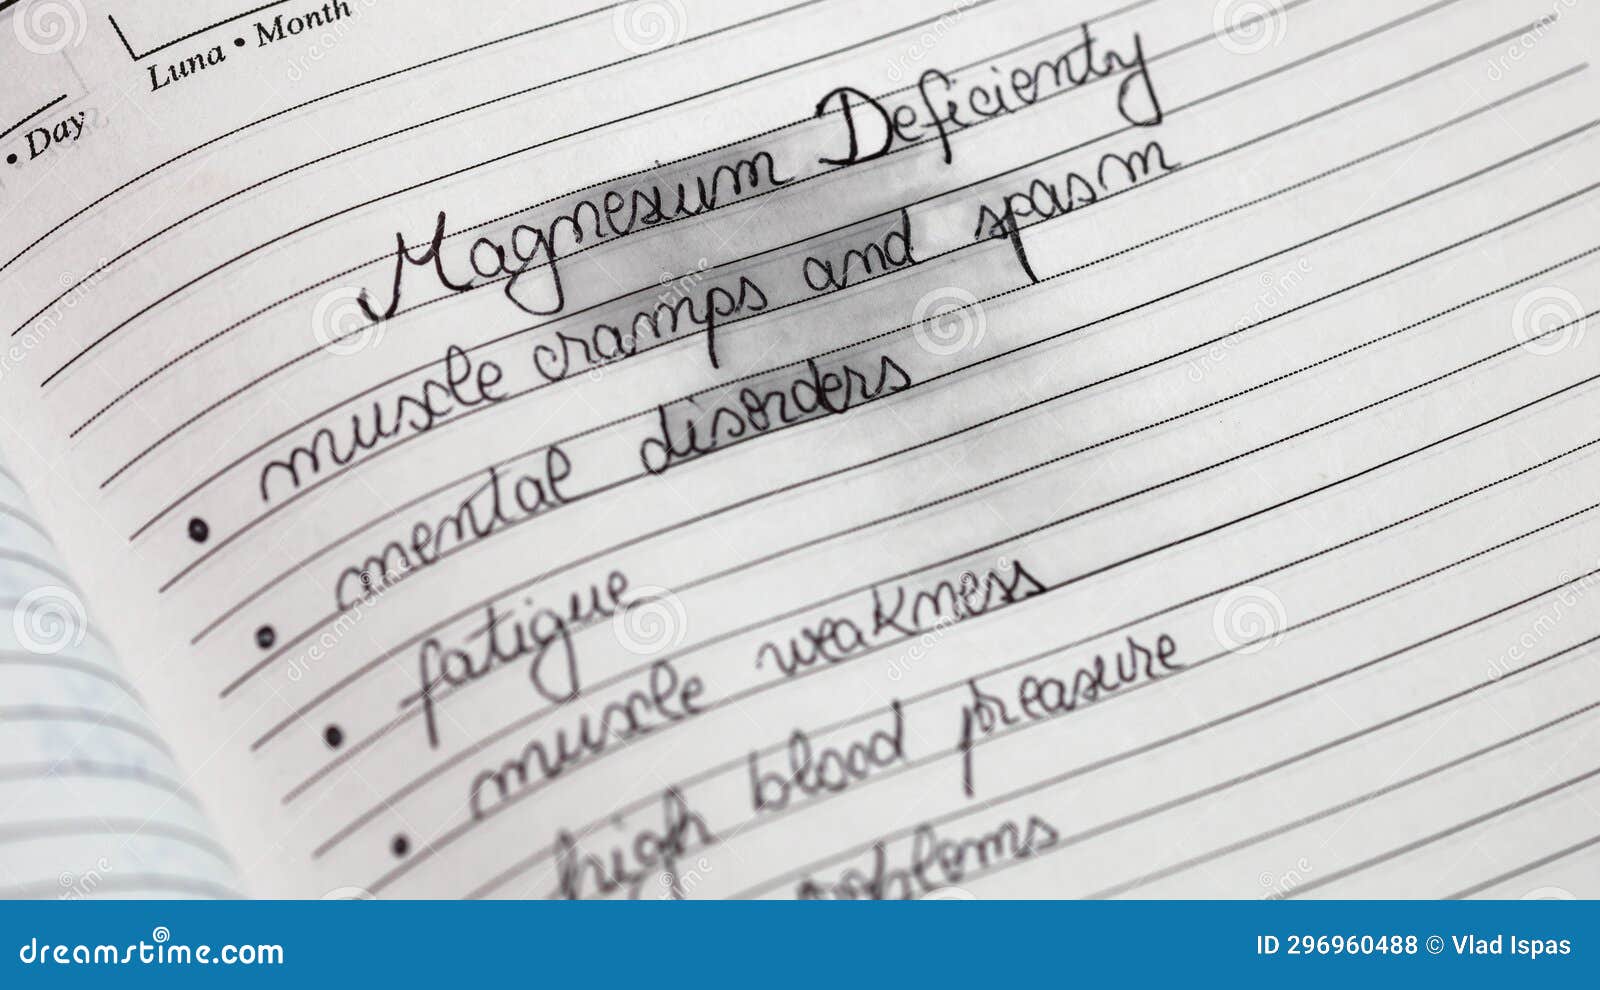 Luna • Month
• Day
Magnesium Deficienty
• muscle cramps and spasm
• mental disorders
• fatigue
• muscle weakness
high blood preasure
problems
dreamstime.com
ID 296960488 © Vlad Ispas